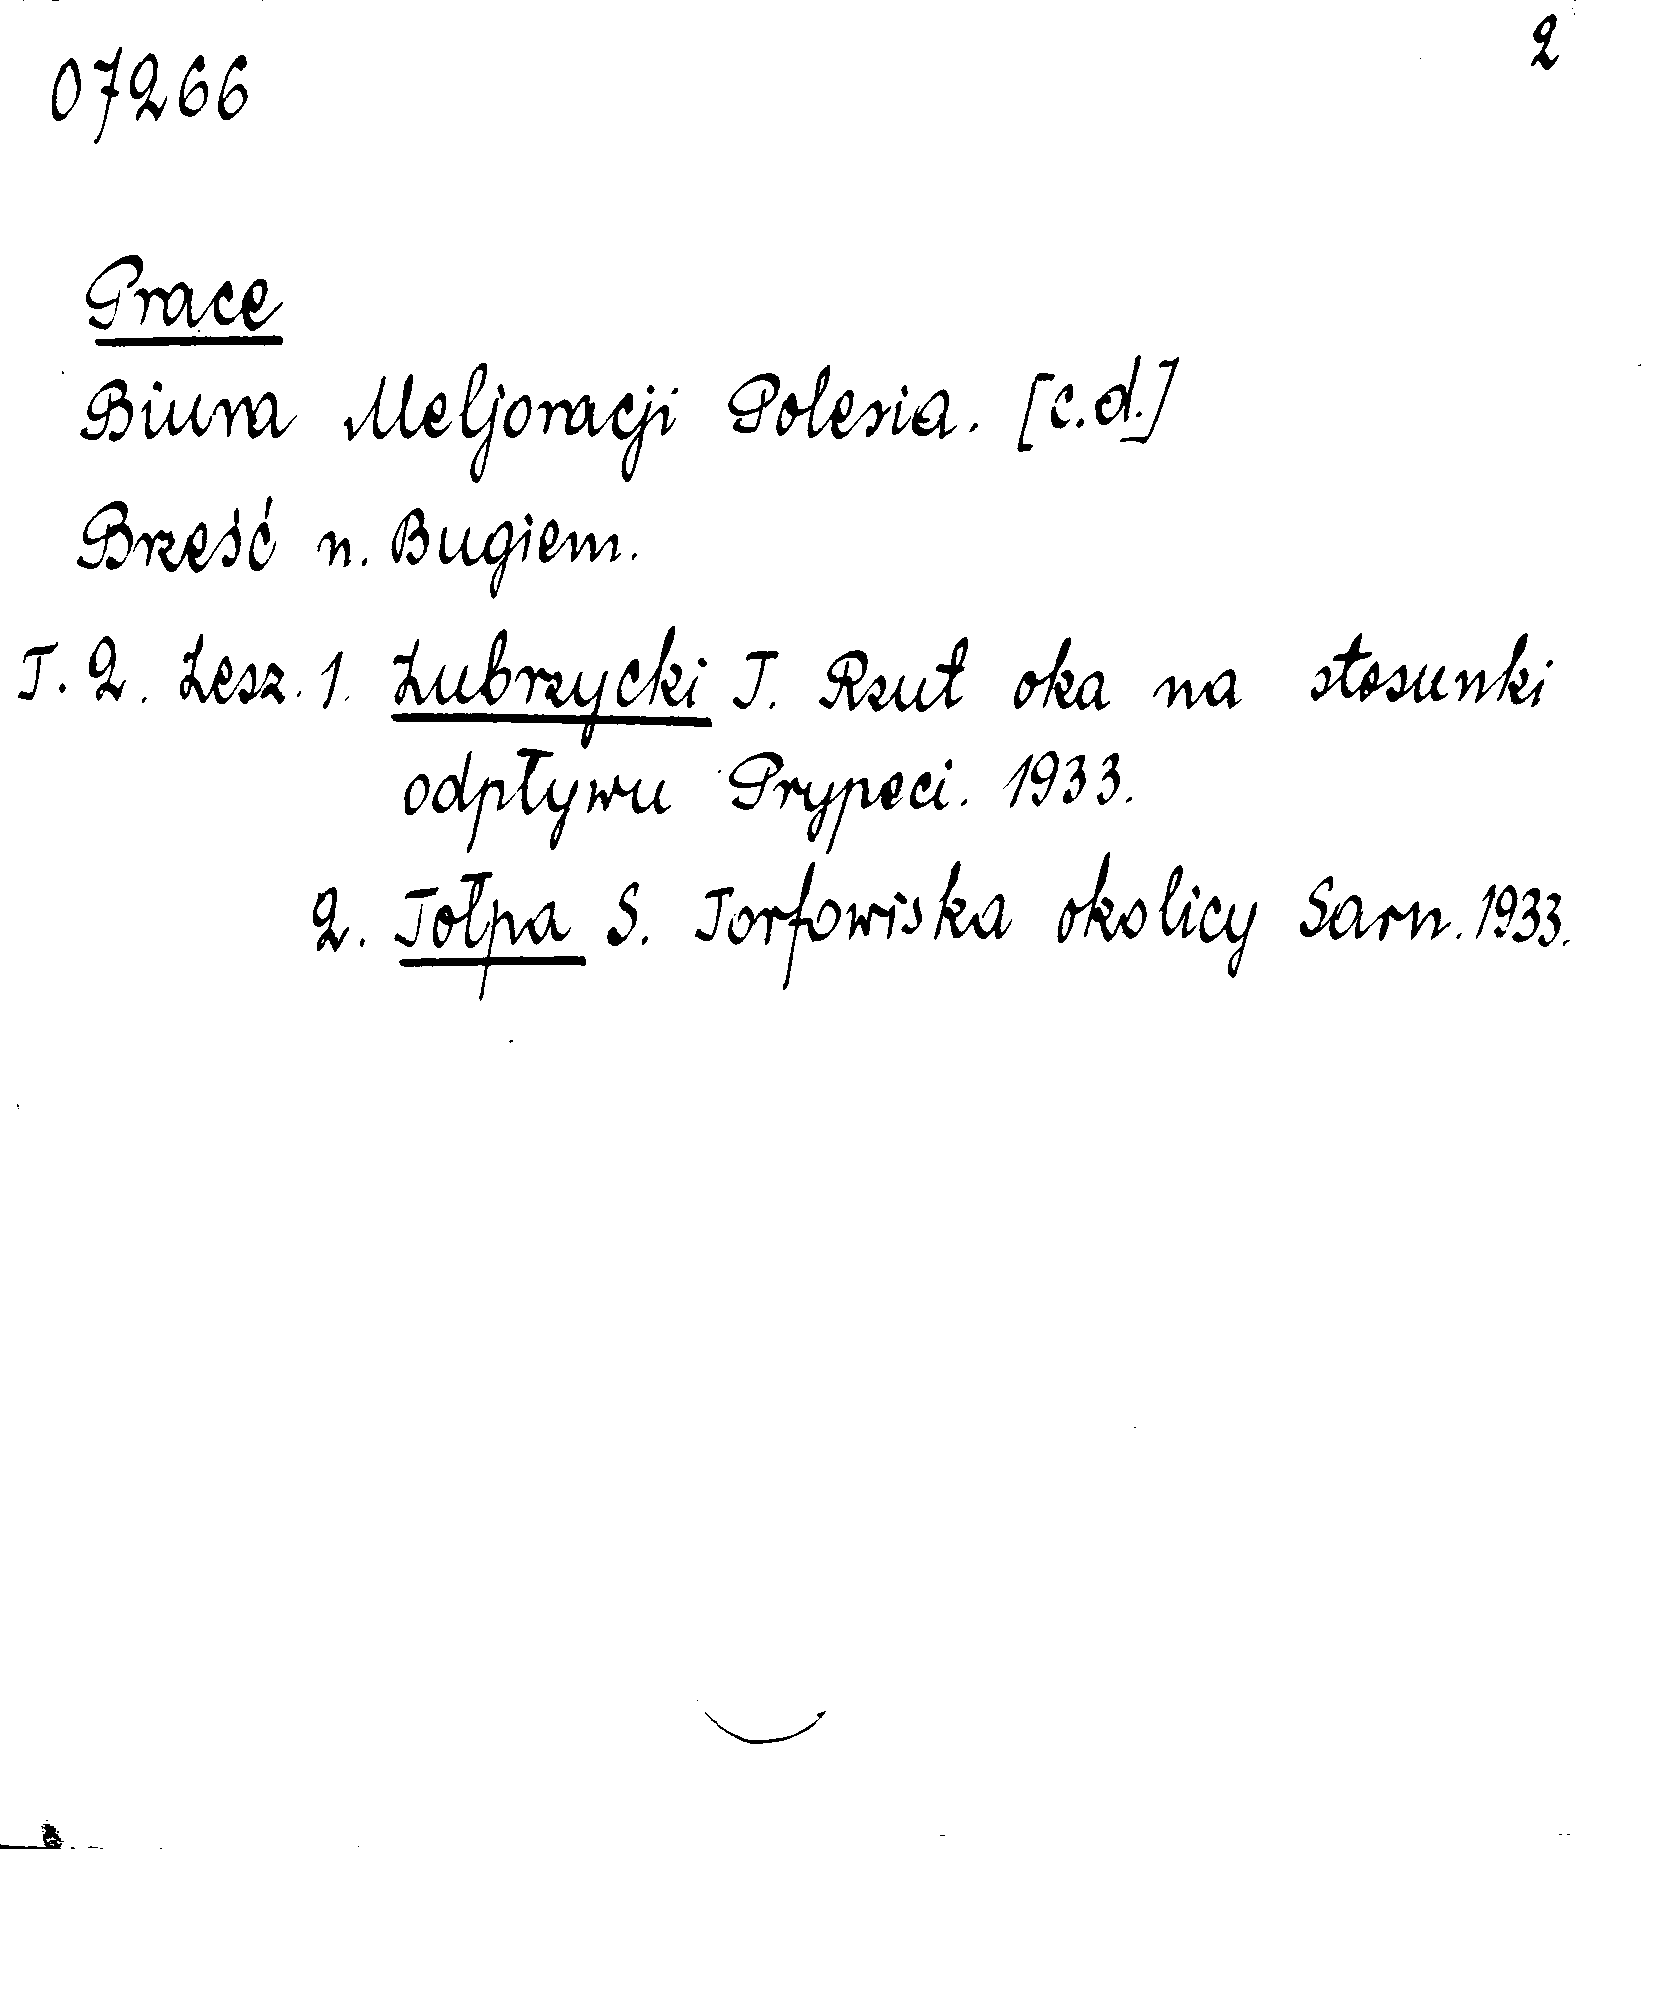 2
07266
Prace
Biura Meljoracji Polesia. [c.d.]
Brześć n. Bugiem.
T. 2. Zesz. 1. Zubrzycki T. Rzut oka na stosunki
odpływu Prypeci. 1933.
2. Tołpa S. Torfowiska okolicy Sarn. 1933.